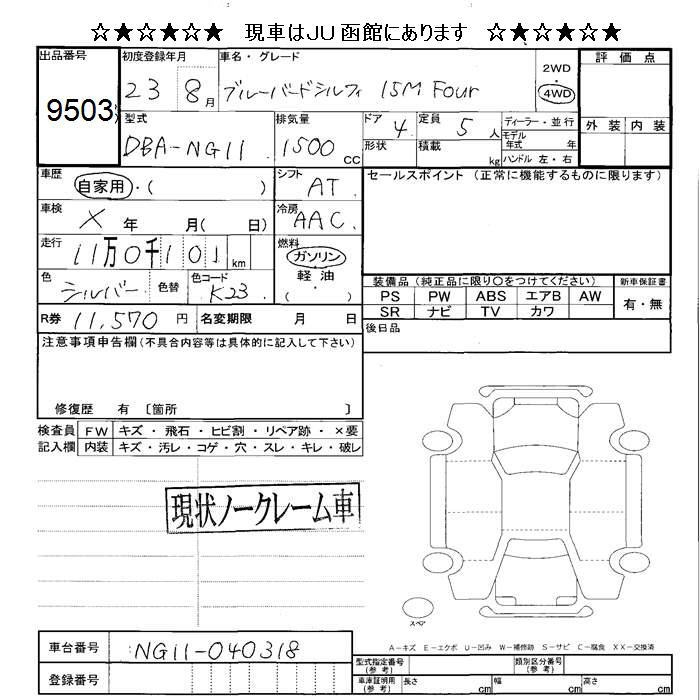 ☆★☆★☆★ 現車はJU函館にあります ☆★☆★☆★
出品番号 初度登録年月 車名・グレード 評価点
9503 23 8月 ブルーバードシルフィ 15M Four 2WD 4WD
型式 排気量 ドア 4 定員 5人 ディーラー・並行 外装 内装
DBA-NG11 1500cc 形状 積載 kg モデル年式 年
ハンドル 左・右
車歴 自家用・( ) シフト AT セールスポイント(正常に機能するものに限ります)
車検 X年 月( 日) 冷房 AAC
走行 11万0千101km 燃料 ガソリン・軽油・( )
色 シルバー 色替 色コード K23 装備品(純正品に限り○をつけてください) 新車保証書
PS PW ABS エアB AW 有・無
SR ナビ TV カワ
R券 11,570円 名変期限 月 日 後日品
注意事項申告欄(不具合内容等は具体的に記入して下さい)
修復歴 有 〔箇所 〕
検査員 FW キズ・飛石・ヒビ割・リペア跡・×要
記入欄 内装 キズ・汚レ・コゲ・穴・スレ・キレ・破レ
現状ノークレーム車
スペア
A-キズ E-エクボ U-凹み W-補修跡 S-サビ C-腐食 XX-交換済
車台番号 NG11-040318 型式指定番号(参考) 類別区分番号(参考)
登録番号 車庫証明用(参考) 長さ cm 幅 cm 高さ cm